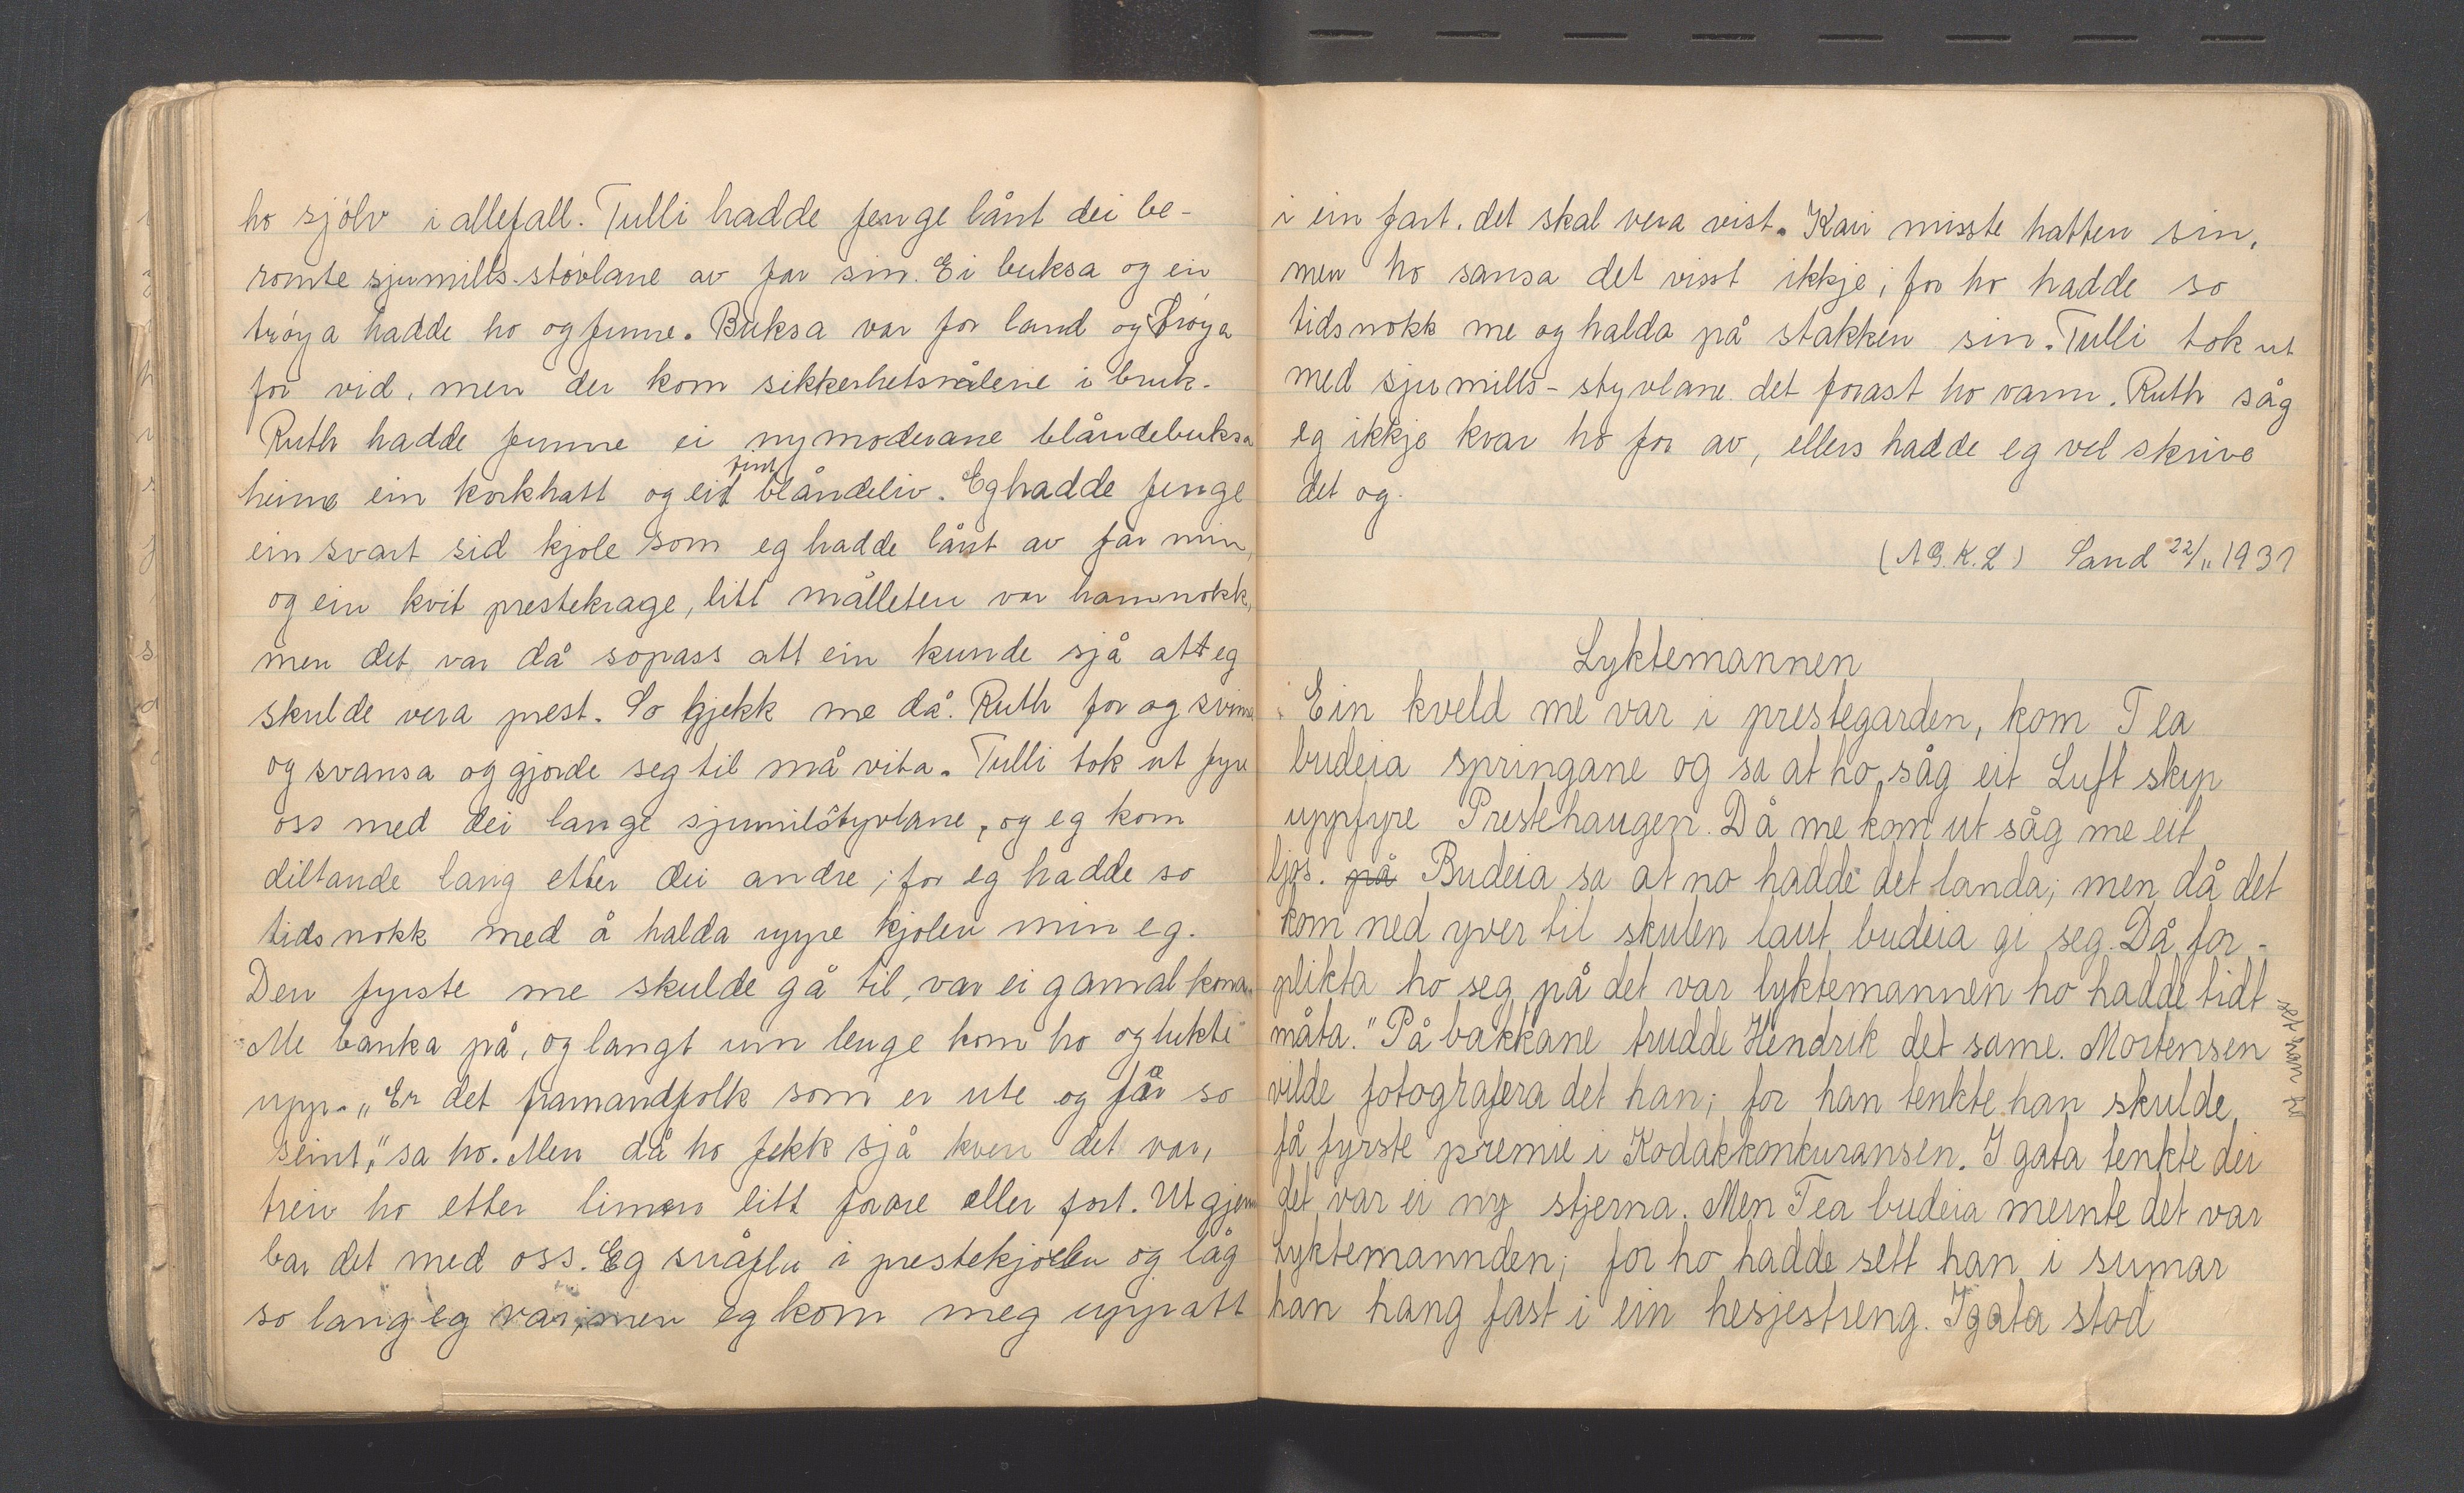 ho sjölv i allefall. Tulli hadde fenge lånt dei be-
römte sjumills-stövlane av far sin. Ei buksa og ein
tröya hadde ho og funne. Buksa var for land og tröya
for vid, men der kom sikkerhetsnålene i bruk.
Ruth hadde funne ei nymoderane blåndebuksa
heime ein korkhatt og eit fint blåndeliv. Eg hadde fenge
ein svart sid kjole som eg hadde lånt av far min,
og ein kvit prestekrage, litt målleten var han nokk,
men det var då sopass att ein kunde sjå att eg
skulde vera prest. So gjekk me då. Ruth for og svinsa
og svansa og gjorde seg til må vita. Tulli tok ut fyre
oss med dei lange sjumilstyvlane, og eg kom
diltande lang etter dei andre; for eg hadde so
tids nokk med å halda uppe kjolen min eg.
Den fyrste me skulde gå til, var ei gamal kona.
Me banka på, og langt um lenge kom ho og lukte
upp. „Er det framandfolk som er ute og fær so
seint," sa ho. Men då ho fekk sjå kven det var,
treiv ho etter limen litt fware eller fort. Ut gjen
bar det med oss. Eg snåfla i prestekjolen og låg
so lang eg var, men eg kom meg upp att
i ein fart. det skal vera vist. Kari misste hatten sin,
men ho sansa det visst ikkje; for ho hadde so
tids nokk me og halda på stakken sin. Tulli tok ut
med sjumills-styvlane det forast ho vann. Ruth såg
eg ikkje kvar ho for av, ellers hadde eg vel skrive
det og.
(A G. K. L) Sand 22/11 1931
Lyktemannen
Ein kveld me var i prestegarden, kom Tea
budeia springane og sa at ho såg eit Luft skip
uppfyre Prestehaugen. Då me kom ut såg me eit
ljos. på Budeia sa at no hadde det landa; men då det
kom ned yver til skulen laut budeia gi seg. Då for-
plikta ho seg på det var lyktemannen ho hadde tidt
måta." På bakkane trudde Hendrik det same. Mortensen
vilde fotografera det han; for han tenkte han skulde
få fyrste premie i Kodakkonkuransen. I gata tenkte dei
det var ei ny stjerna. Men Tea budeia meinte det var
Lyktemannden; for ho hadde sett han i sumar
han hang fast i ein hesjestreng. I gata stod